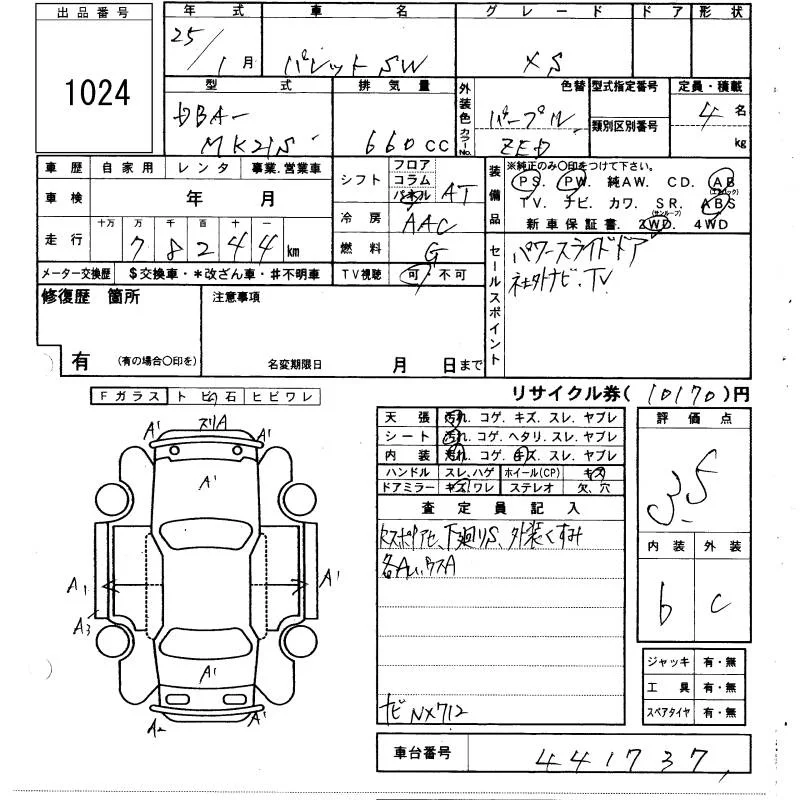 出品番号
1024
年式 車名 グレード ドア 形状
25/1月 パレットSW XS
型式 排気量 外装色 カラーNo. 色替 型式指定番号 定員・積載
DBA-MK21S 660CC パープル ZED 類別区別番号 4名 kg
車歴 自家用 レンタ 事業.営業車
車検 年 月
走行 十万 万 千 百 十 一
78244km
メーター交換歴 $交換車・*改ざん車・#不明車
シフト フロア コラム パネル AT
冷房 AAC
燃料 G
TV視聴 可・不可
装備品 ※純正のみ〇印をつけて下さい。
PS. PW. 純AW. CD. AB(エアバック)
TV. ナビ. カワ. SR.(サンルーフ) ABS
新車保証書. 2WD. 4WD
セールスポイント
パワースライドドア
社外ナビ・TV
修復歴 箇所
有 (有の場合〇印を)
注意事項
名変期限日 月 日まで
リサイクル券(10170)円
Fガラス トビ石 ヒビワレ
A' ズリA A'
A'
A1 A'
A3
A'
A2 A'
天張 汚れ. コゲ. キズ. スレ. ヤブレ
シート 汚れ. コゲ. ヘタリ. スレ. ヤブレ
内装 汚れ. コゲ. キズ. スレ. ヤブレ
ハンドル スレ、ハゲ ホイール(CP) キズ
ドアミラー キズ.ワレ ステレオ 欠、穴
査定員記入
下廻りS、外装くすみ
各AU、ウスA
ナビ NX712
評価点
3.5
内装 外装
b C
ジャッキ 有・無
工具 有・無
スペアタイヤ 有・無
車台番号 441737